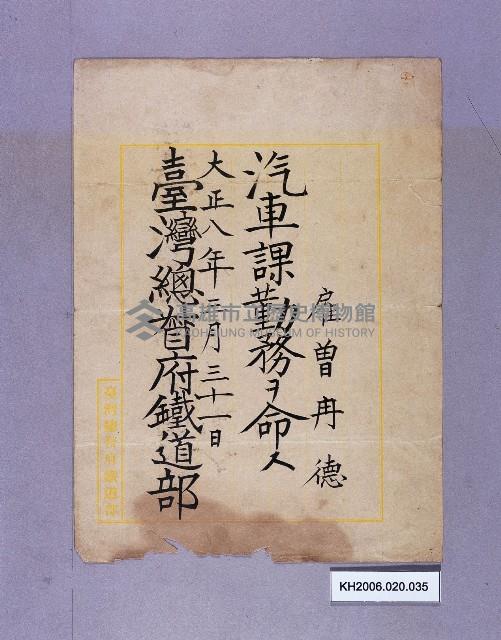 雇 曽冉德
汽車課勤務ヲ命ス
大正八年三月三十一日
臺灣總督府鐵道部
臺灣總督府鐵道部
高雄市立歷史博物館
KAOHSIUNG MUSEUM OF HISTORY
KH2006.020.035